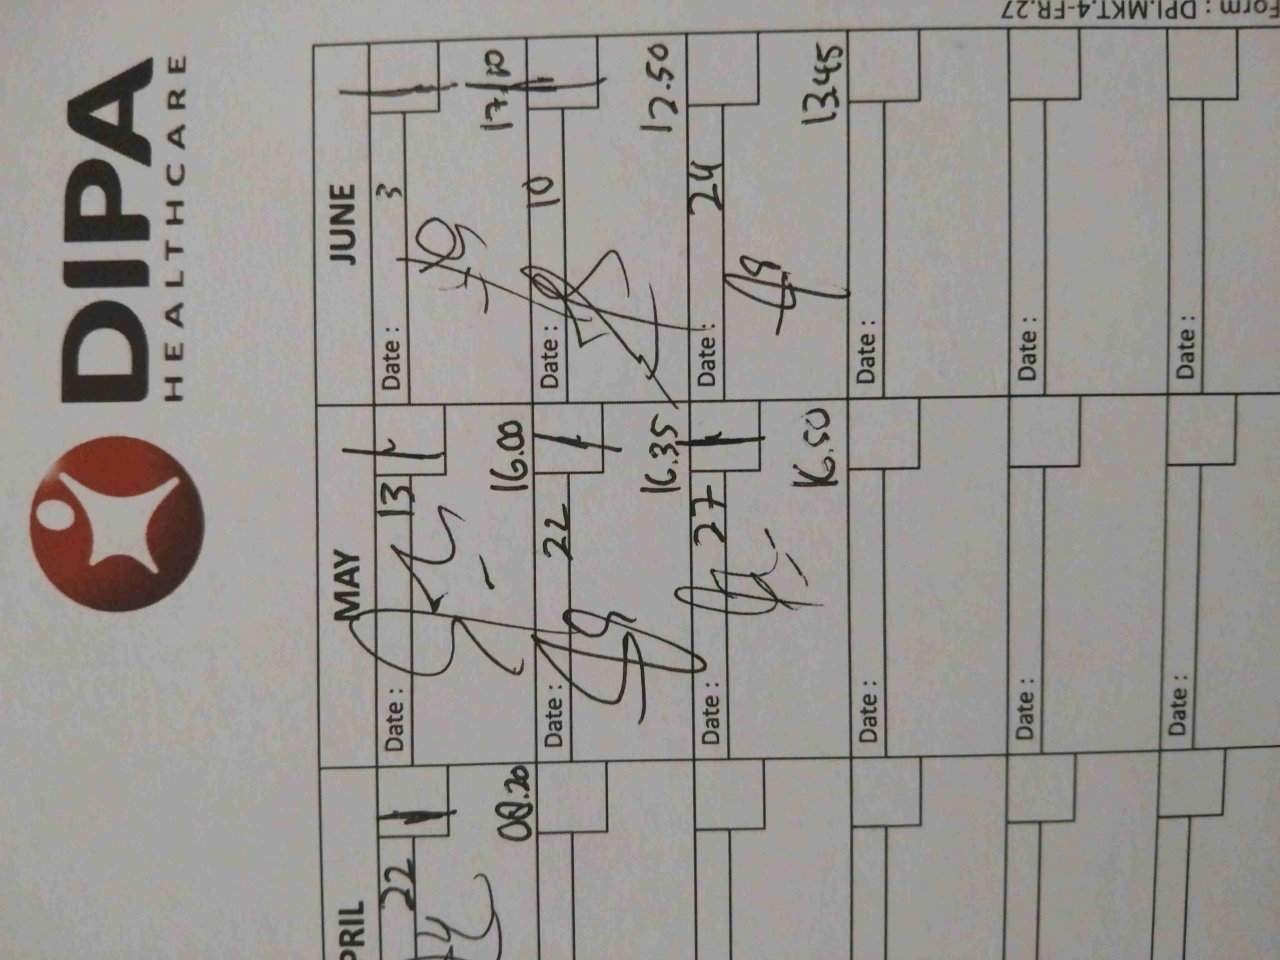 DIPA
HEALTHCARE
PRIL
MAY
JUNE
22
Date : 13
Date : 3
08.20
16.00
17.10
Date : 22
Date : 10
16.35
12.50
Date : 27
Date : 24
16.50
13.45
Date :
Date :
Date :
Date :
Date :
Date :
Form : DPI.MKT.4-FR.27